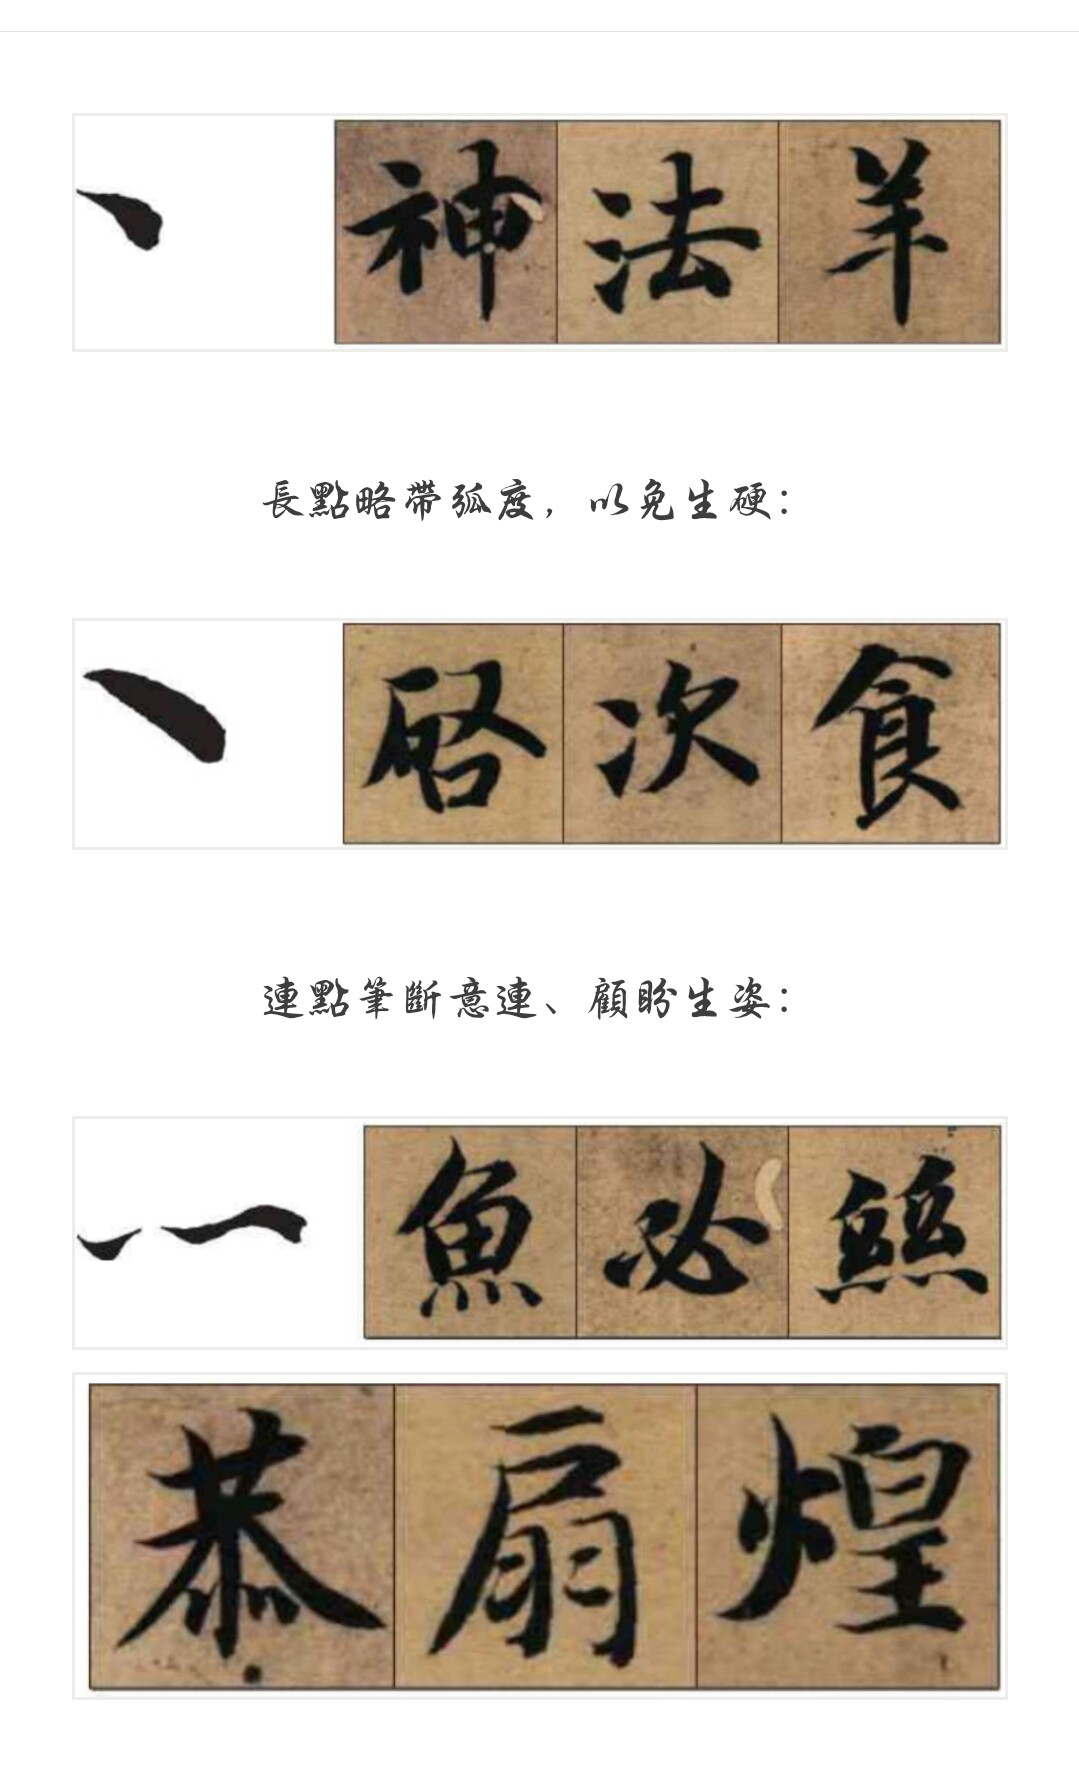 神法羊
長點略帶弧度，以免生硬：
啓次食
連點筆斷意連、顧盼生姿：
魚必
恭扇煌